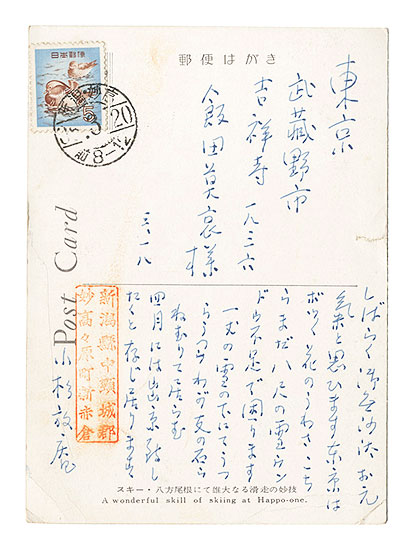 郵便はがき
日本郵便
20
前8-12
東京
武蔵野市
吉祥寺 一八三六
飯田莫哀様
三、一八
Post Card
しばらく御無沙汰 お元
気と思ひます 東京は
ボツ〱花のうわさ こち
らまだ八尺の雪 ウン
ドウ不足で困ります
一丈の雪の下にてうつ
らうつらわが友の石ら
ねむりて居らむ
四月には出京致し
たくと存じ居ります
新潟縣中頸城郡
妙高々原町新赤倉
小杉放庵
スキー・八方尾根にて雄大なる滑走の妙技
A wonderful skill of skiing at Happo-one.